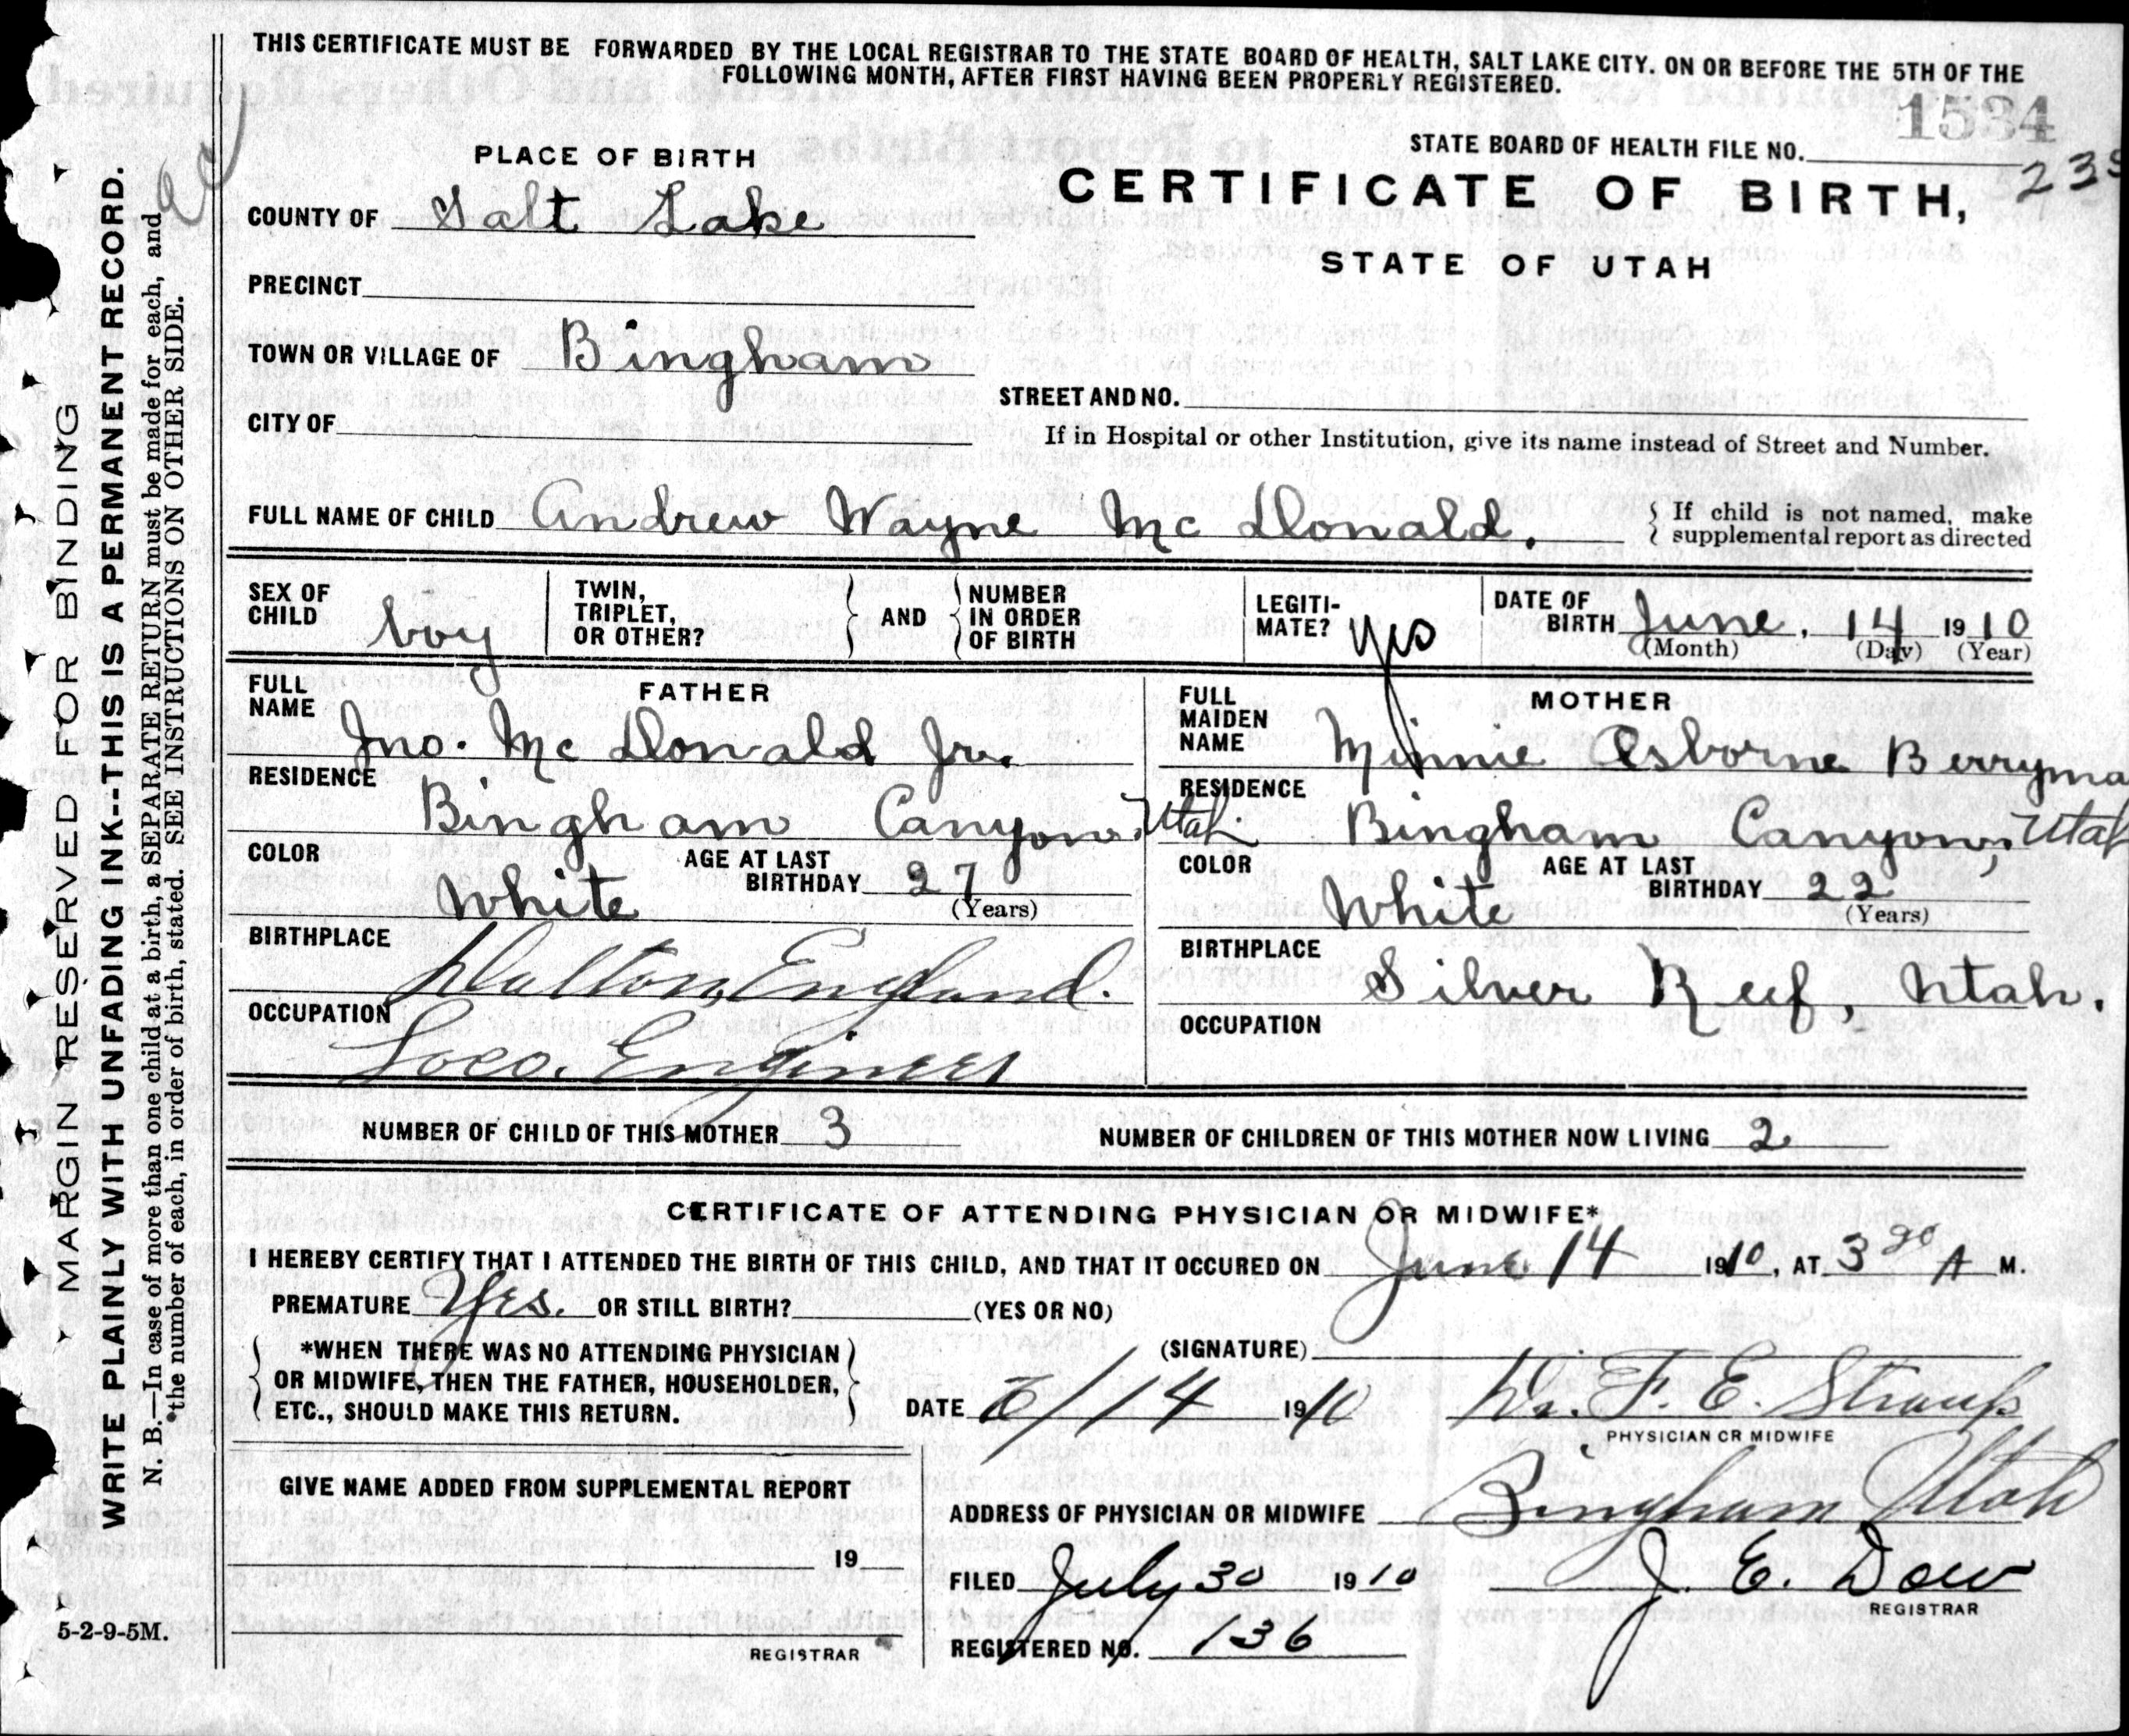 THIS CERTIFICATE MUST BE FORWARDED BY THE LOCAL REGISTRAR TO THE STATE BOARD OF HEALTH, SALT LAKE CITY. ON OR BEFORE THE 5TH OF THE
FOLLOWING MONTH, AFTER FIRST HAVING BEEN PROPERLY REGISTERED.
1534
STATE BOARD OF HEALTH FILE NO.
PLACE OF BIRTH
CERTIFICATE OF BIRTH,
STATE OF UTAH
COUNTY OF Salt Lake
PRECINCT
TOWN OR VILLAGE OF Bingham
STREET AND NO.
CITY OF
If in Hospital or other Institution, give its name instead of Street and Number.
FULL NAME OF CHILD Andrew Wayne Mc Donald.
If child is not named, make
supplemental report as directed
SEX OF CHILD boy
TWIN, TRIPLET, OR OTHER?
AND
NUMBER IN ORDER OF BIRTH
LEGITI-MATE? Yes
DATE OF BIRTH June, 14 1910
(Month) (Day) (Year)
FATHER
FULL NAME Jno. Mc Donald Jr.
RESIDENCE Bingham Canyon, Utah
COLOR White
AGE AT LAST BIRTHDAY 27
(Years)
BIRTHPLACE Dalton, England.
OCCUPATION Loco. Engineer
MOTHER
FULL MAIDEN NAME Minnie Osborne Berryma
RESIDENCE Bingham Canyon, Utah
COLOR White
AGE AT LAST BIRTHDAY 22
(Years)
BIRTHPLACE Silver Reef, Utah.
OCCUPATION
NUMBER OF CHILD OF THIS MOTHER 3
NUMBER OF CHILDREN OF THIS MOTHER NOW LIVING 2
CERTIFICATE OF ATTENDING PHYSICIAN OR MIDWIFE*
I HEREBY CERTIFY THAT I ATTENDED THE BIRTH OF THIS CHILD, AND THAT IT OCCURED ON June 14 1910, AT 3 A M.
PREMATURE Yes. OR STILL BIRTH? (YES OR NO)
*WHEN THERE WAS NO ATTENDING PHYSICIAN
OR MIDWIFE, THEN THE FATHER, HOUSEHOLDER,
ETC., SHOULD MAKE THIS RETURN.
(SIGNATURE)
DATE 6/14 1910
Dr. F. E. Straup
PHYSICIAN OR MIDWIFE
GIVE NAME ADDED FROM SUPPLEMENTAL REPORT
19
REGISTRAR
ADDRESS OF PHYSICIAN OR MIDWIFE Bingham Utah
FILED July 30 1910
J. E. Dow
REGISTRAR
REGISTERED NO. 136
5-2-9-5M.
MARGIN RESERVED FOR BINDING
WRITE PLAINLY WITH UNFADING INK--THIS IS A PERMANENT RECORD.
N. B.—In case of more than one child at a birth, a SEPARATE RETURN must be made for each, and
*the number of each, in order of birth, stated. SEE INSTRUCTIONS ON OTHER SIDE.